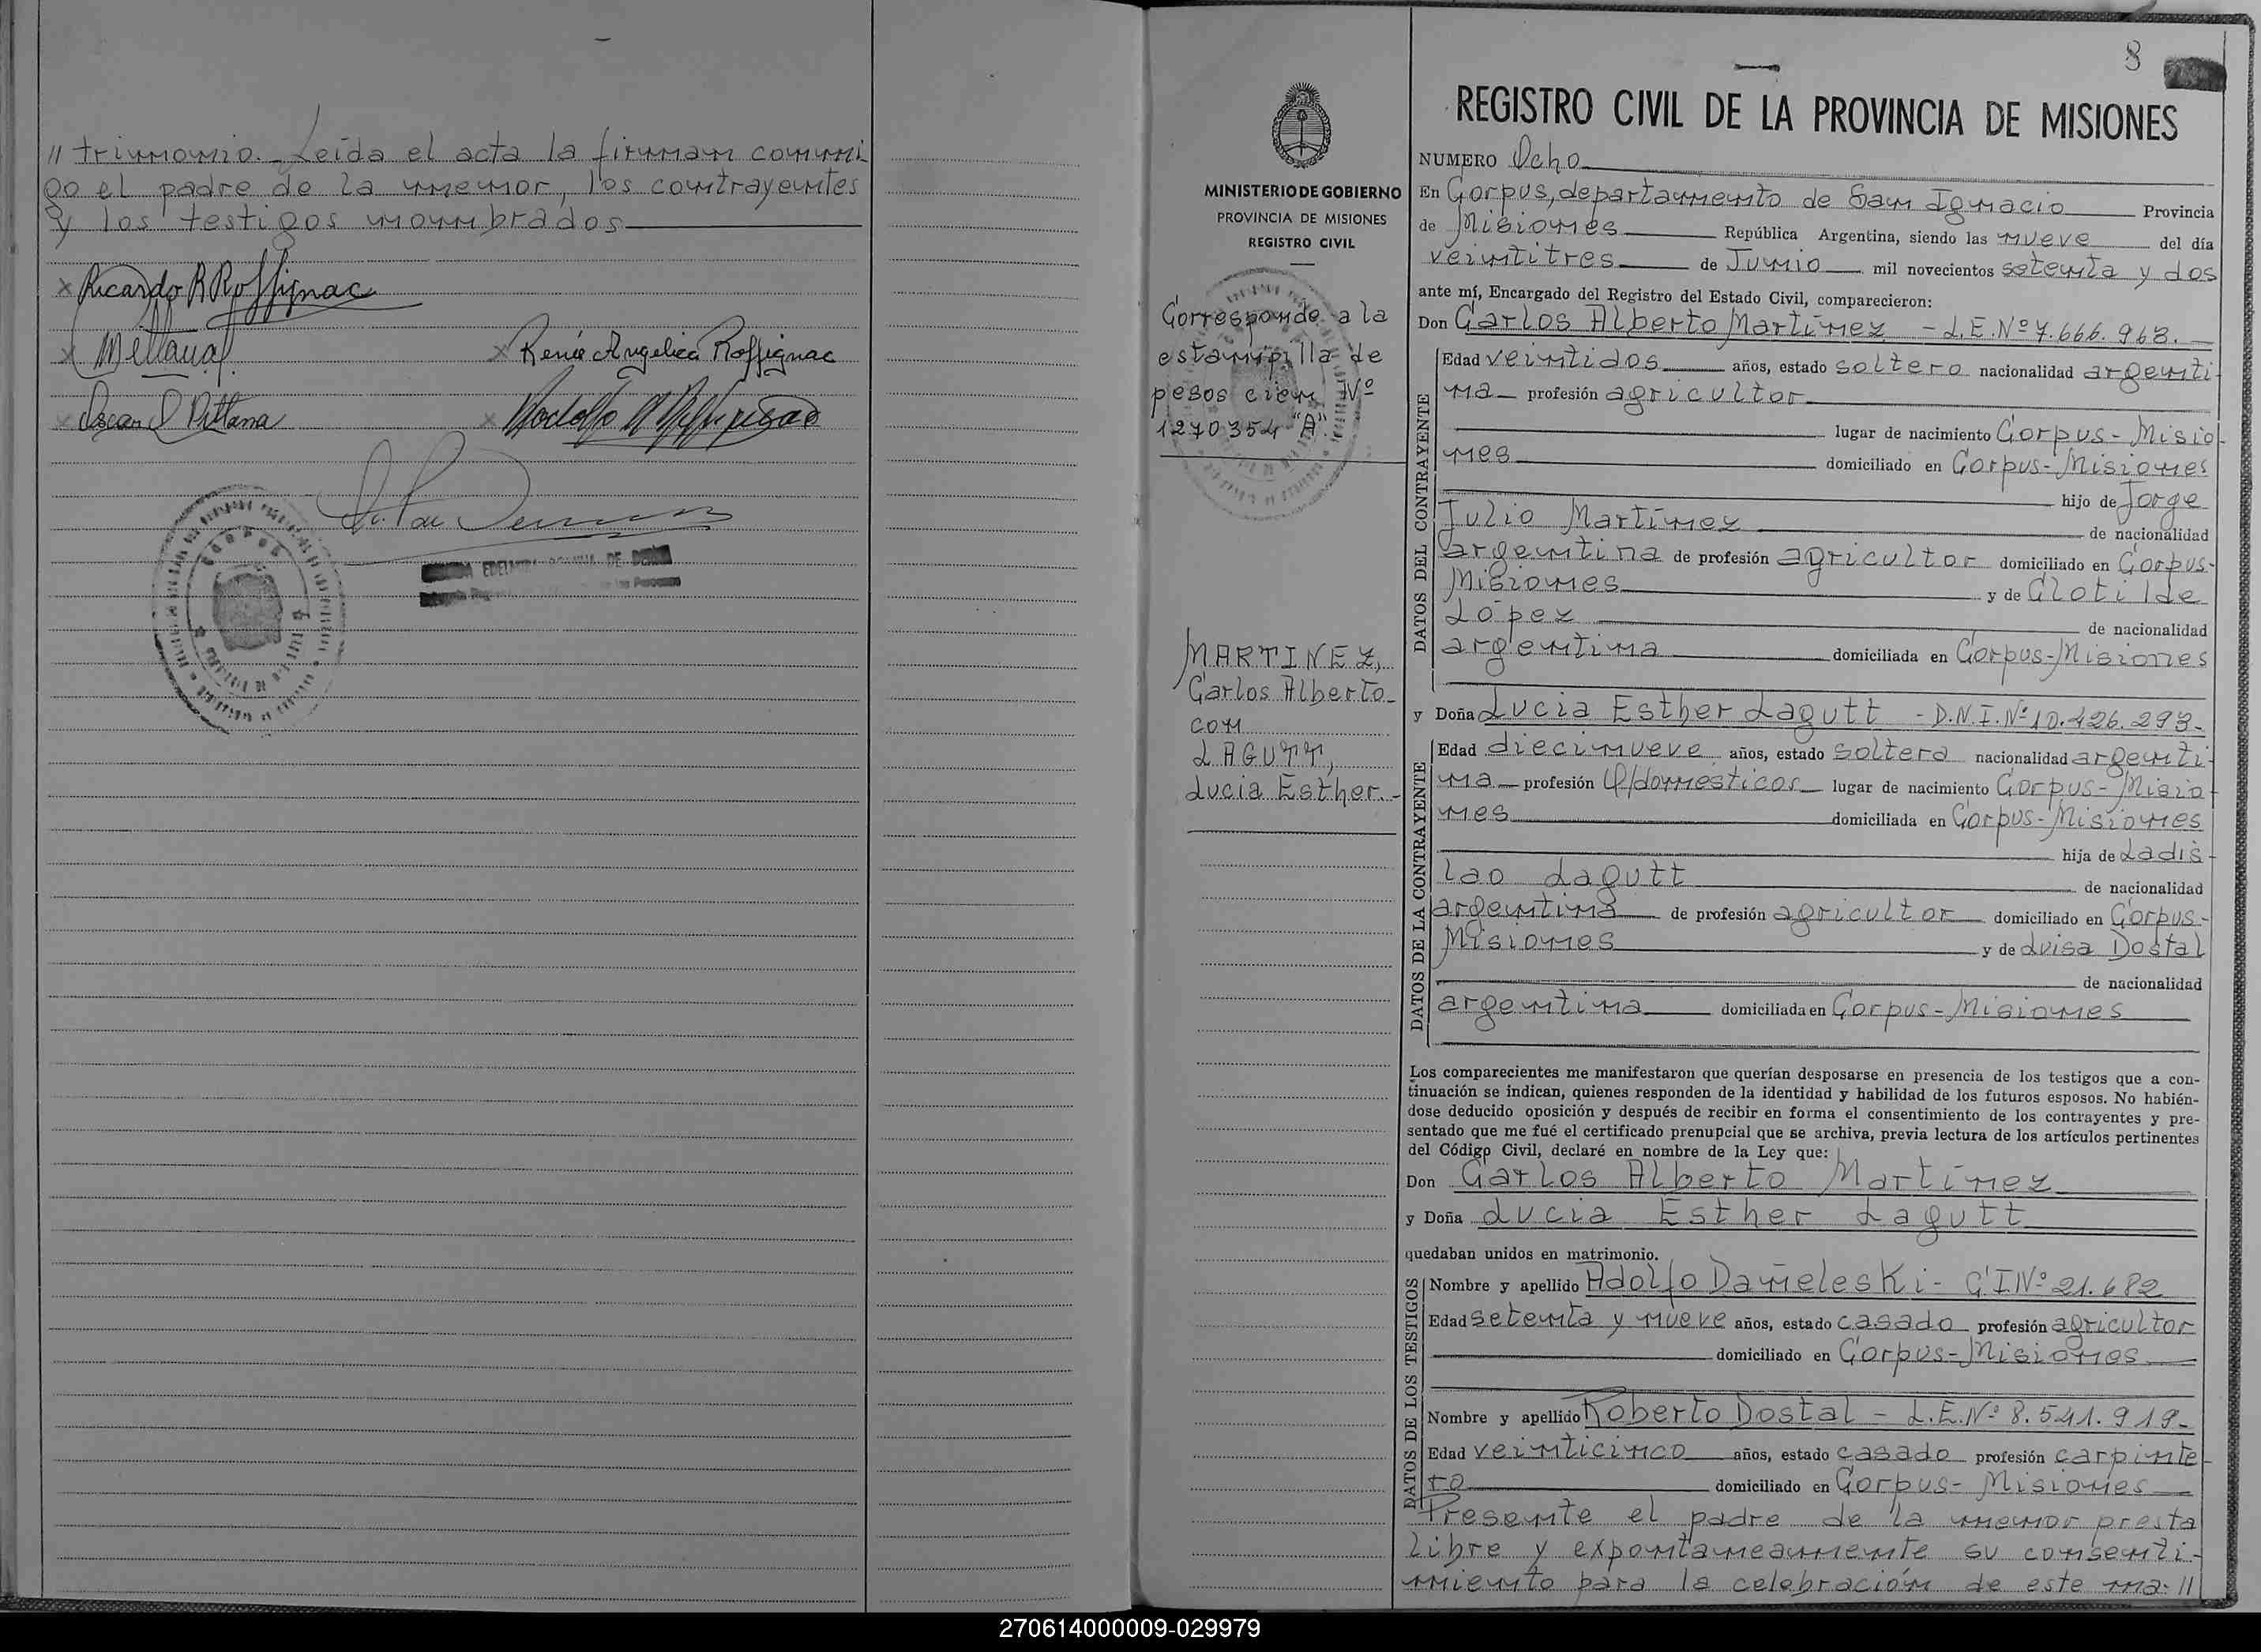 // trimonio.- Leída el acta la firman conmi
go el padre de la menor, los contrayentes
y los testigos nombrados
x Ricardo R Roffignac
x
x Renée Angelica Roffignac
x Oscar
x Rodolfo
8
REGISTRO CIVIL DE LA PROVINCIA DE MISIONES
MINISTERIO DE GOBIERNO
PROVINCIA DE MISIONES
REGISTRO CIVIL
Corresponde a la
estampilla de
pesos cien Nº
1270354 "A".
MARTINEZ,
Carlos Alberto
con
LAGUTT,
Lucia Esther.-
NUMERO Ocho
En Corpus, departamento de San Ignacio Provincia
de Misiones República Argentina, siendo las nueve del día
veintitres de Junio mil novecientos setenta y dos
ante mí, Encargado del Registro del Estado Civil, comparecieron:
Don Carlos Alberto Martínez - L.E.Nº 7.666.963.-
DATOS DEL CONTRAYENTE
Edad veintidos años, estado soltero nacionalidad argenti
na profesión agricultor
lugar de nacimiento Corpus- Misio
nes domiciliado en Corpus-Misiones
hijo de Jorge
Julio Martínez de nacionalidad
argentina de profesión agricultor domiciliado en Corpus-
Misiones y de Clotilde
López de nacionalidad
argentina domiciliada en Corpus-Misiones
y Doña Lucia Esther Lagutt - D.N.I.Nº 10.426.293-
DATOS DE LA CONTRAYENTE
Edad diecinueve años, estado soltera nacionalidad argenti
na profesión Q/domesticos lugar de nacimiento Corpus-Misio
nes domiciliada en Corpus-Misiones
hija de Ladis
lao Lagutt de nacionalidad
argentina de profesión agricultor domiciliado en Corpus-
Misiones y de Luisa Dostal
de nacionalidad
argentina domiciliada en Corpus-Misiones
Los comparecientes me manifestaron que querían desposarse en presencia de los testigos que a con-
tinuación se indican, quienes responden de la identidad y habilidad de los futuros esposos. No habién-
dose deducido oposición y después de recibir en forma el consentimiento de los contrayentes y pre-
sentado que me fué el certificado prenupcial que se archiva, previa lectura de los artículos pertinentes
del Código Civil, declaré en nombre de la Ley que:
Don Carlos Alberto Martínez
y Doña Lucia Esther Lagutt
quedaban unidos en matrimonio.
DATOS DE LOS TESTIGOS
Nombre y apellido Adolfo Dañeleski - C.I Nº 21.682
Edad setenta y nueve años, estado casado profesión agricultor
domiciliado en Corpus-Misiones
Nombre y apellido Roberto Dostal - L.E.Nº 8.541.919-
Edad veinticinco años, estado casado profesión carpinte
ro domiciliado en Corpus- Misiones
Presente el padre de la menor presta
libre y expontaneamente su consenti-
miento para la celebración de este ma-//
270614000009-029979